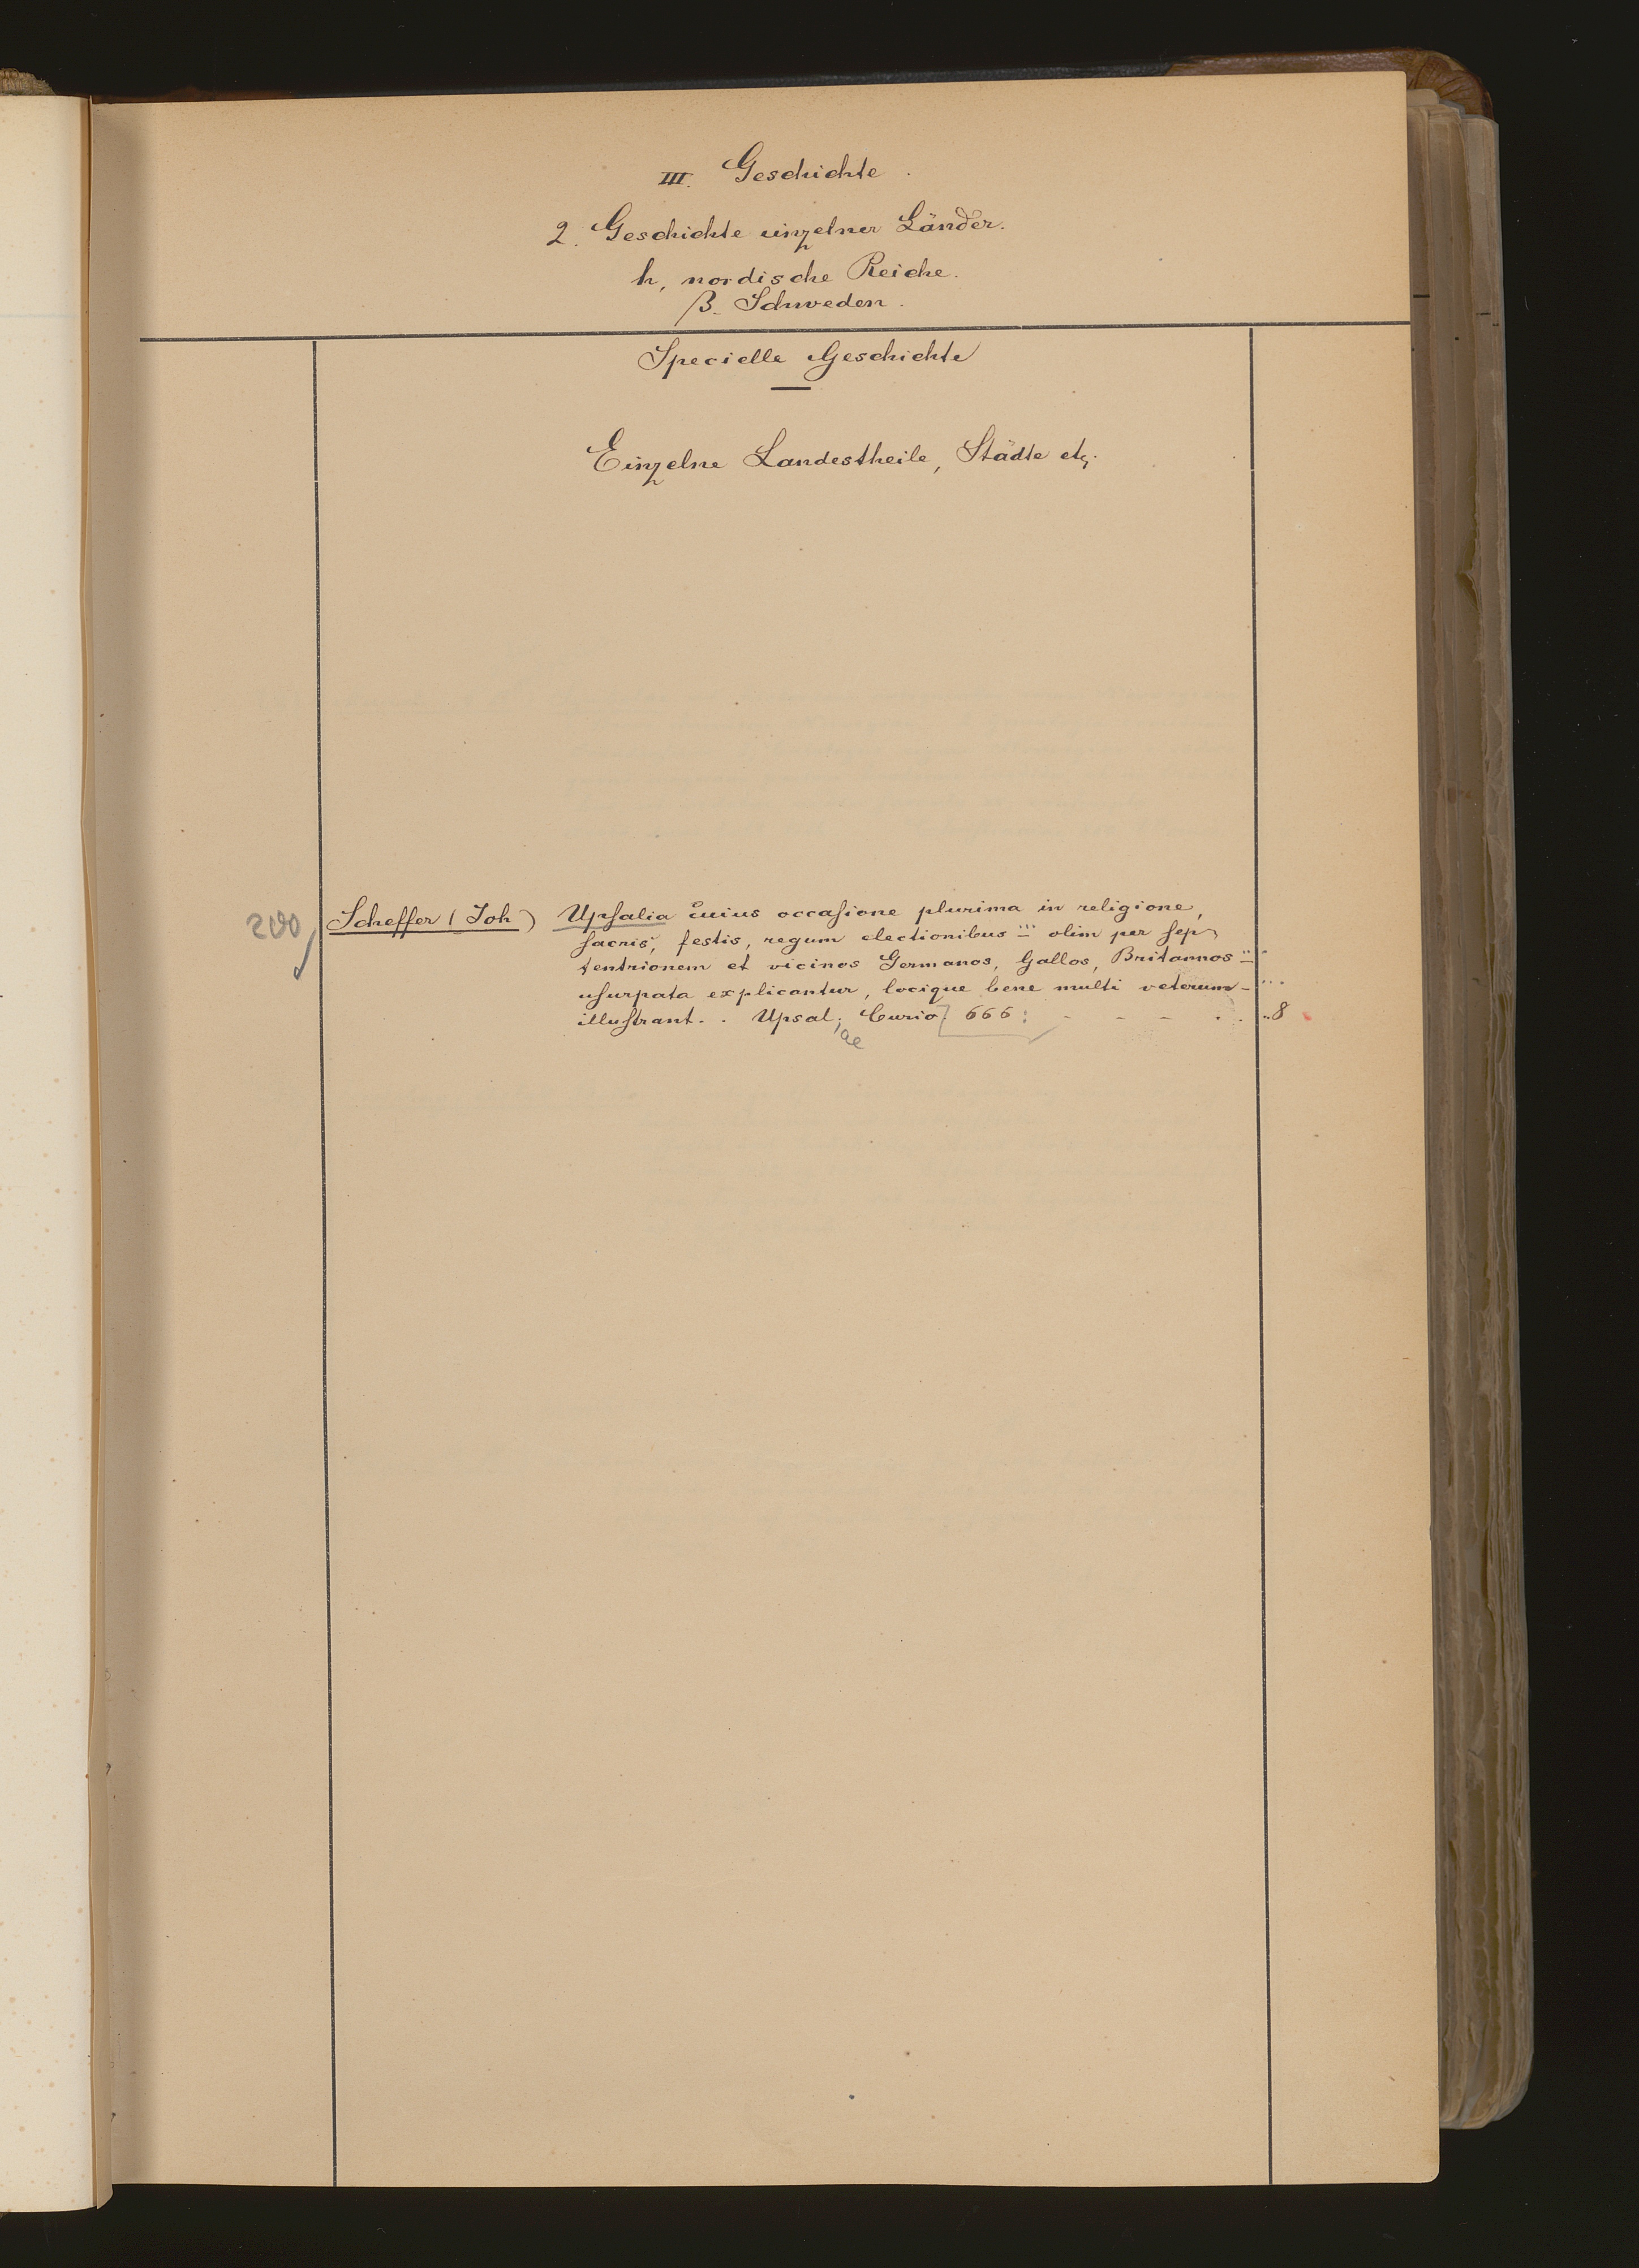 III. Geschichte.
2. Geschichte einzelner Länder.
h, nordische Reiche.
β. Schweden.
Specielle Geschichte
Einzelne Landestheile, Städte etz.
200 Scheffer (Joh) Upsalia cuius occasione plurima in religione,
sacris, festis, regum electionibus ... olim per sep
tentrionem et vicinos Germanos, Gallos, Britannos ...
usurpata explicantur, locique bene multi veterum -
illustrant. . Upsal; Curio. 666: - - - - . . 8
ae